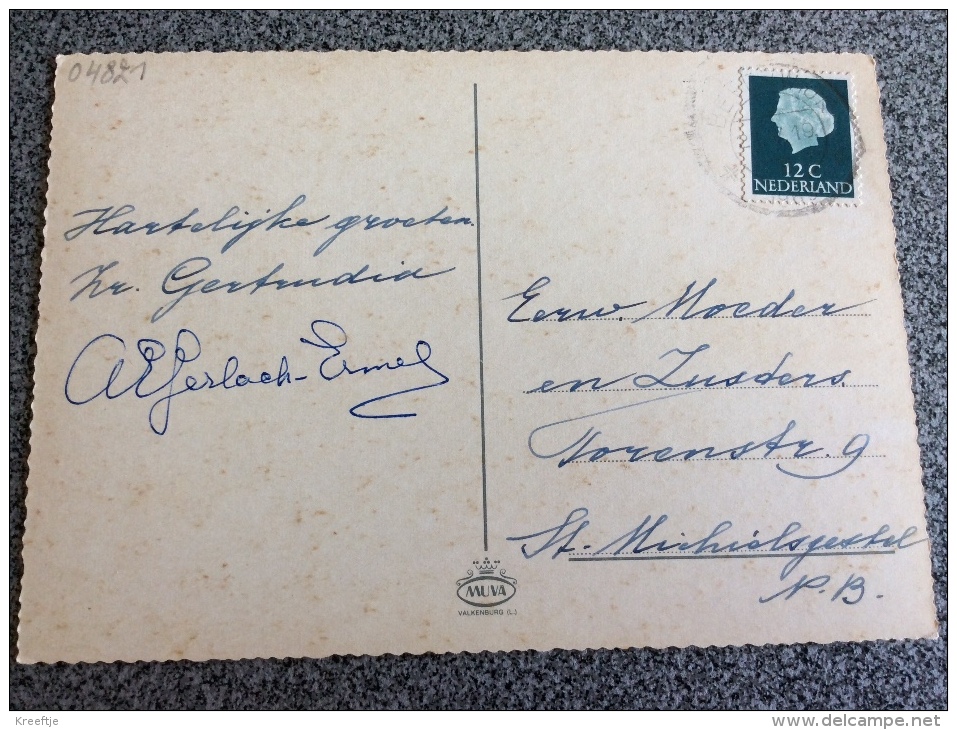 04821
12 C
NEDERLAND
Hartelijke groeten.
Zr. Gertrudia
AEGerlach-Ermel
Eerw. Moeder
en Zusters
Torenstr. 9
St. Michielsgestel
N.B.
MUVA
VALKENBURG (L.)
Kreeftje
www.delcampe.net